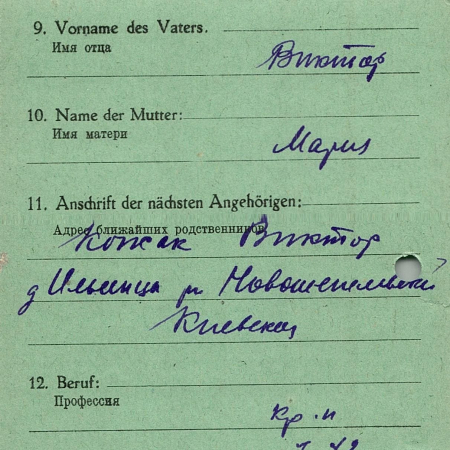 9. Vorname des Vaters.
Имя отца
Виктор
10. Name der Mutter:
Имя матери
Мария
11. Anschrift der nächsten Angehörigen:
Адрес ближайших родственников
Виктор
д Ильинца р
Киевская
12. Beruf:
Профессия
кр-н